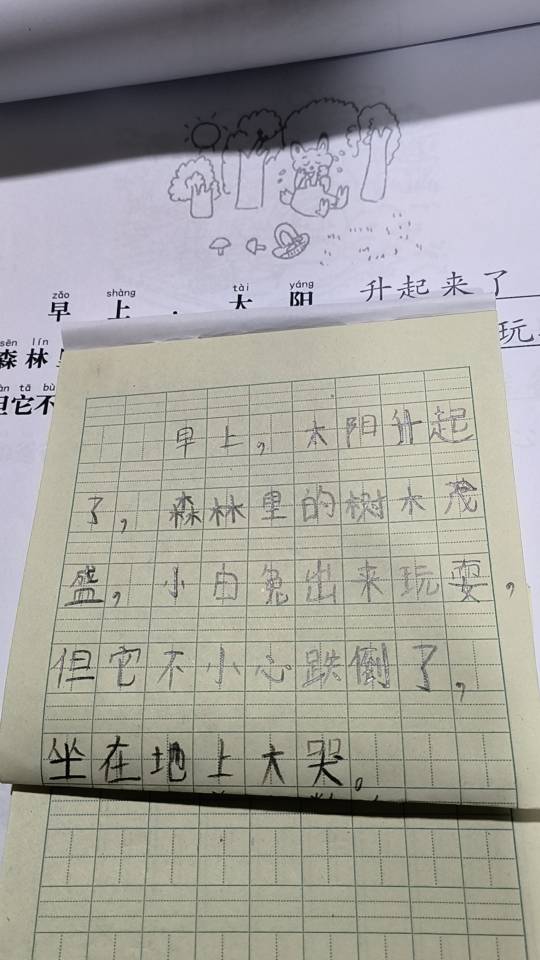 zǎo shàng tài yáng
早上，太阳升起来了
sēn lín
森林
玩
tā bù
但它不
早上，太阳升起
了，森林里的树木茂
盛，小白兔出来玩耍，
但它不小心跌倒了，
坐在地上大哭。